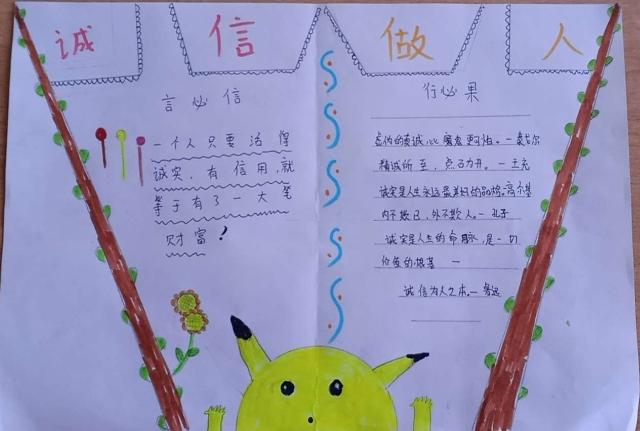 诚 信 做 人
言必信
一个人只要活得
诚实，有信用，就
等于有了一大笔
财富！
行必果
虚伪的真诚，比魔鬼更可怕。—泰戈尔
精诚所至，金石为开。—王充
诚实是人生永远最美好的品格。高尔基
内不欺己，外不欺人。—孔子
诚实是人生的命脉，是一切
价值的根基 —
诚信为人之本。—鲁迅